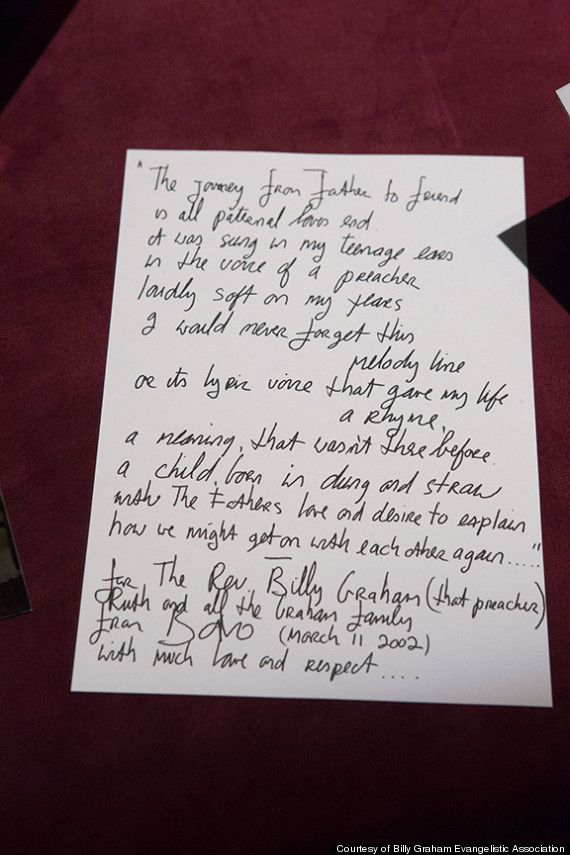 "The journey from Father to friend
is all paternal loves end.
It was sung in my teenage ears
in the voice of a preacher
loudly soft on my years
I would never forget this
melody line
or its lyric voice that gave my life
a Rhyme,
a meaning, that wasn't there before.
a child, born in dung and straw
with The Fathers love and desire to explain
how we might get on with each other again....."
for The Rev. Billy Graham (that preacher)
Ruth and all the Graham family
from BONO (March 11 2002)
with much love and respect.....
Courtesy of Billy Graham Evangelistic Association